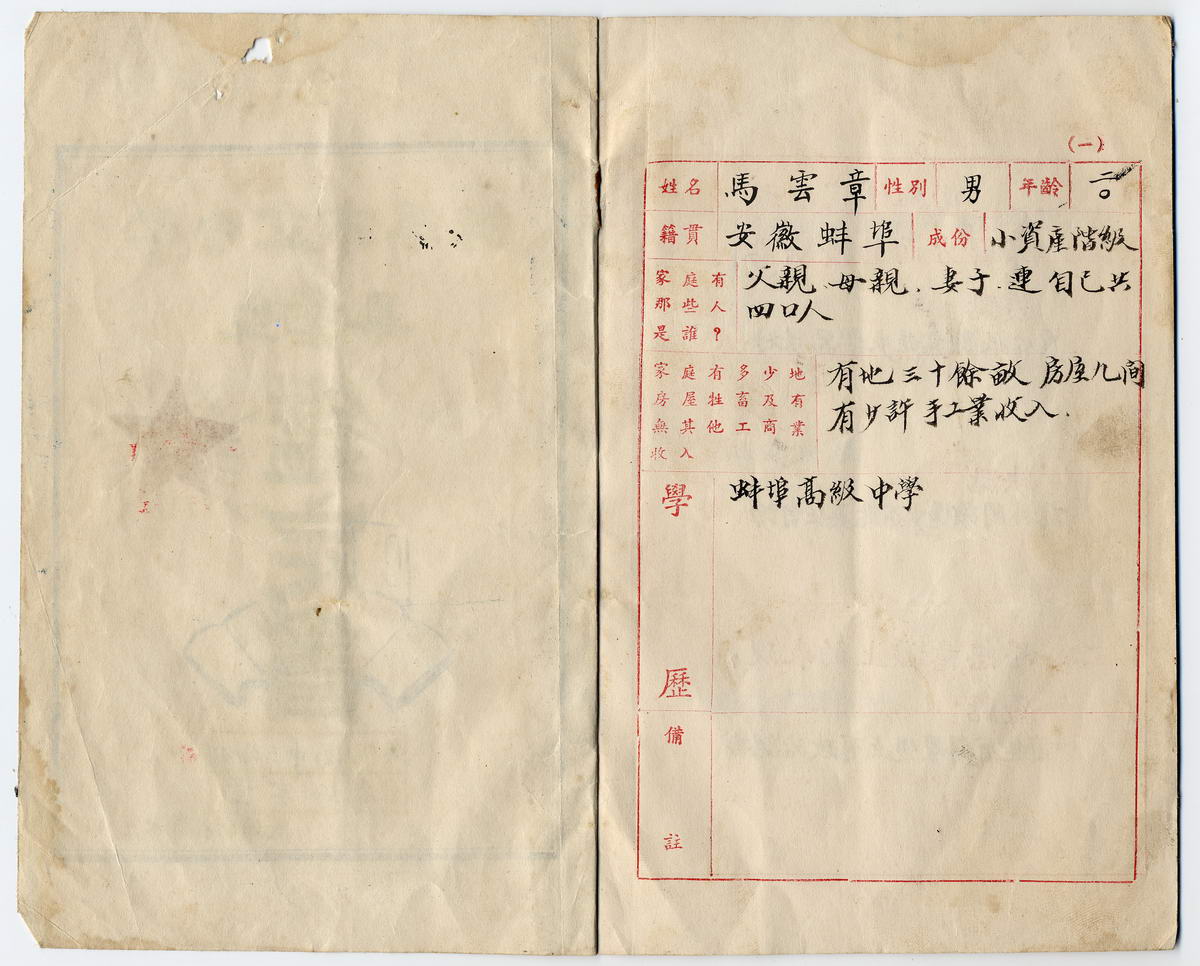 （一）
姓名 馬雲章 性別 男 年齡 二〇
籍貫 安徽蚌埠 成份 小資產階級
家庭有
那些人
是誰？
父親、母親、妻子、連自己共
四口人
家庭有多少地
房屋牲畜及有
無其他工商業
收入
有地三十餘畝 房屋几間
有少許手工業收入．
學歷
蚌埠高級中學
備註